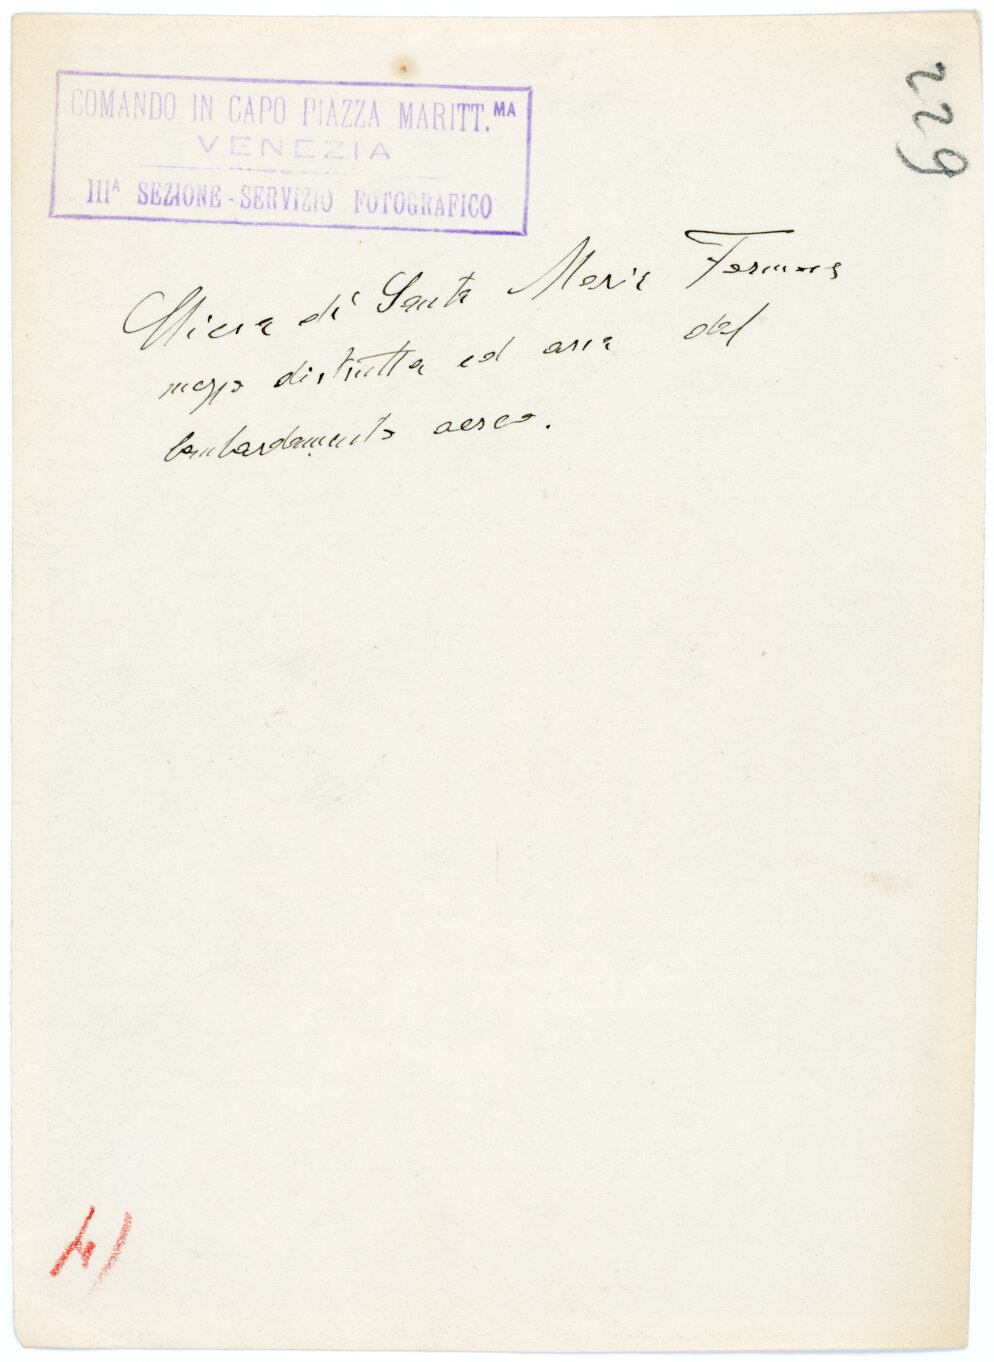 COMANDO IN CAPO PIAZZA MARITT.MA
VENEZIA
IIIA SEZIONE - SERVIZIO FOTOGRAFICO
229
Chiesa di Santa Maria Formosa
mezzo distrutta ed arsa dal
bombardamento aereo.